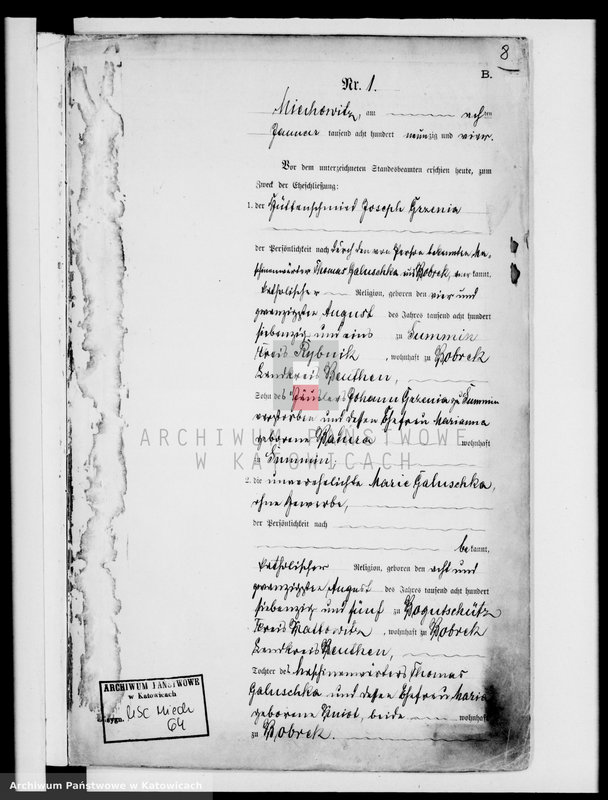 8
B.
Nr. 1.
Miechowitz, am achten
Januar tausend acht hundert neunzig und vier.
Vor dem unterzeichneten Standesbeamten erschien heute, zum
Zweck der Eheschließung:
1. der Hüttenschmied Joseph Grzenia
der Persönlichkeit nach durch den von Person bekannten Ma-
schinenwärter Thomas Galuschka aus Bobrek, anerkannt,
katholischer Religion, geboren den vier und
zwanzigsten August des Jahres tausend acht hundert
siebenzig und eins zu Summin
Kreis Rybnik, wohnhaft zu Bobrek
Landkreis Beuthen,
Sohn des Häuslers Johann Grzenia zu Summin
verstorben und dessen Ehefrau Marianna
geborene wohnhaft
zu Summin.
ARCHIWUM PAŃSTWOWE
W KATOWICACH
2. die unverehelichte Marie Galuschka,
ohne Gewerbe,
der Persönlichkeit nach
bekannt,
katholischer Religion, geboren den acht und
zwanzigsten August des Jahres tausend acht hundert
siebenzig und fünf zu Bogutschütz
Kreis Kattowitz, wohnhaft zu Bobrek
Landkreis Beuthen,
Tochter des Maschinenwärters Thomas
Galuschka und dessen Ehefrau Maria
geborene beide wohnhaft
zu Bobrek.
ARCHIWUM PAŃSTWOWE
w Katowicach
Sygn. USC Miech
64
Archiwum Państwowe w Katowicach